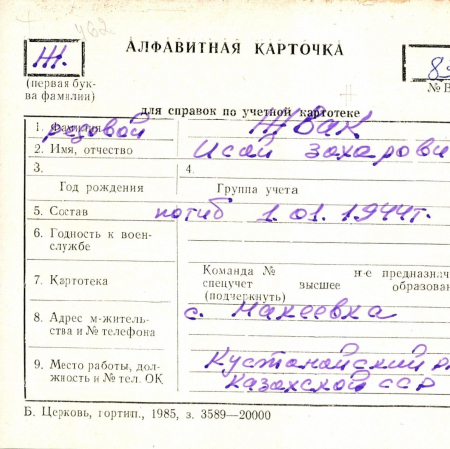 462
АЛФАВИТНАЯ КАРТОЧКА
Ж.
(первая бук-
ва фамилии)
№ В
для справок по учетной картотеке
1. Фамилия рядовой Жвак
2. Имя, отчество Исай Захарови
3. 4.
Год рождения Группа учета
5. Состав погиб 1.01.1944г.
6. Годность к воен-
службе
7. Картотека
Команда №
н-е предназнач
спецучет высшее образован
(подчеркнуть)
8. Адрес м-житель-
ства и № телефона
с. Макеевка
9. Место работы, дол-
жность и № тел. ОК
Кустанайский
Казахской ССР
Б. Церковь, гортип., 1985, з. 3589—20000